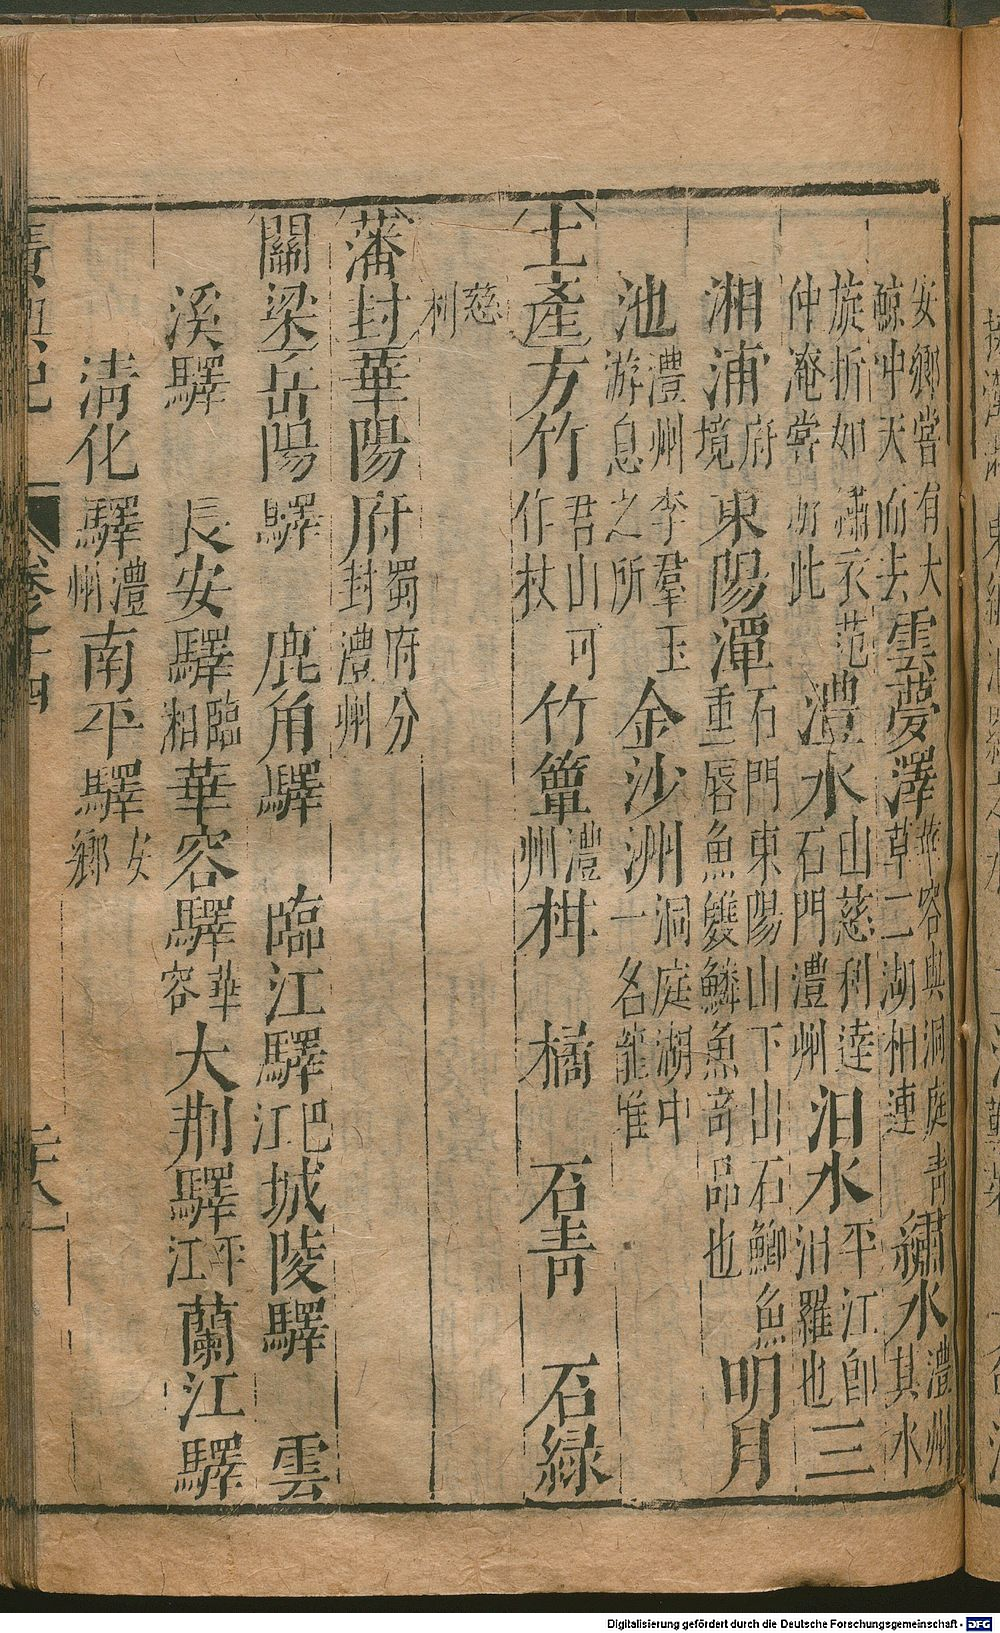 安鄉嘗有大鯨冲天而去雲夢澤華容與洞庭青草二湖相連繡水澧州其水
旋折如繡衣范仲淹嘗此澧水山慈利逹石門澧州汨水平江卽汨羅也三
湘浦府境東陽潭石門東陽山下山石鯽魚重唇魚雙鱗魚奇品也明月
池澧州李羣玉游息之所金沙洲洞庭湖中一名龍堆
土產方竹君山可作杖竹簟澧州柑 橘 石青 石緑
慈利
藩封華陽府蜀府分封澧州
關梁岳陽驛 鹿角驛 臨江驛巴江城陵驛 雲
溪驛 長安驛臨湘華容驛華容大荆驛平江蘭江驛
清化驛澧州南平驛安鄉
廣輿記 卷之十四 二十八
Digitalisierung gefördert durch die Deutsche Forschungsgemeinschaft - DFG